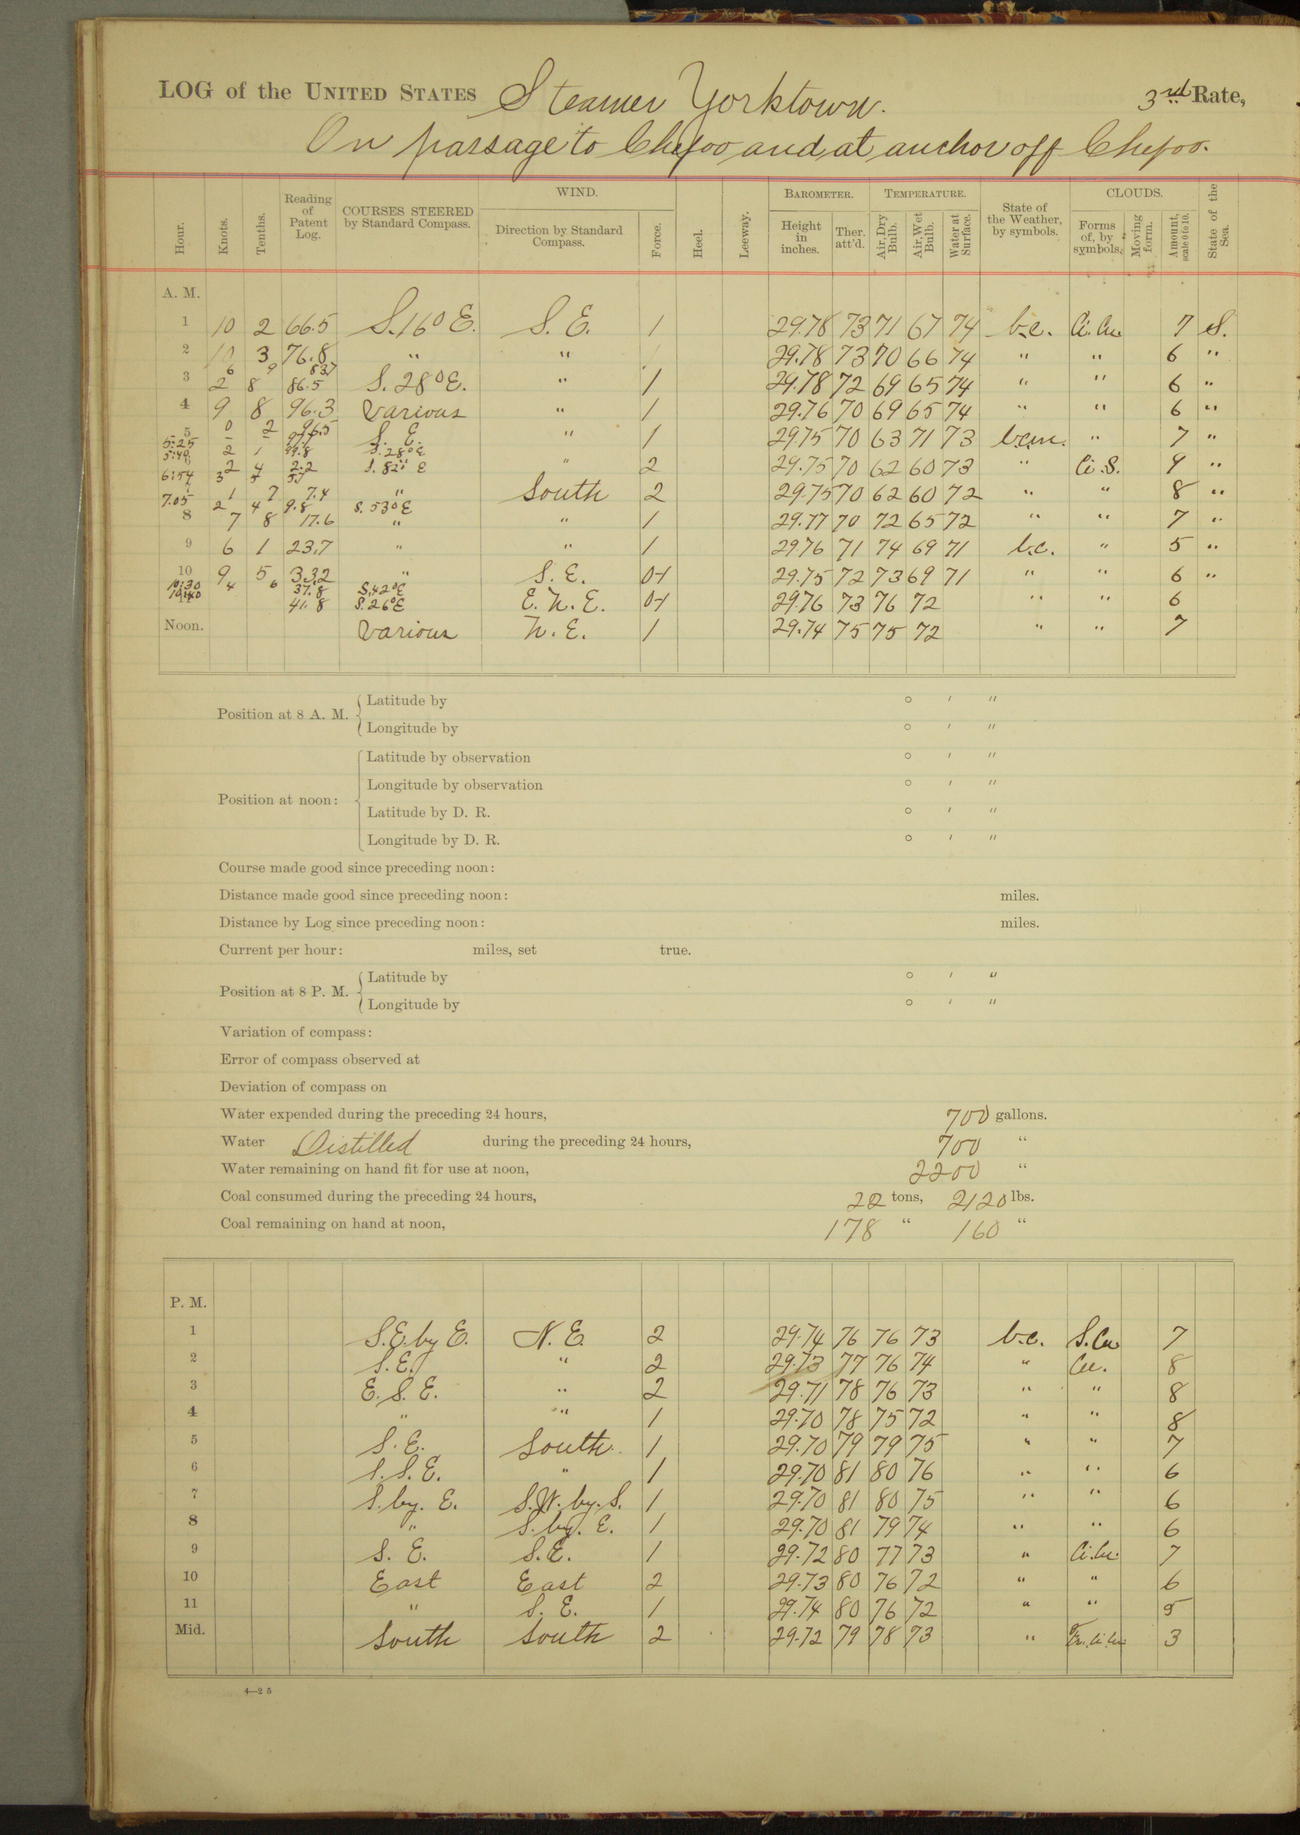 LOG of the UNITED STATES Steamer Yorktown. 3rd Rate,
On passage to Chefoo and at anchor off Chefoo.
Hour. Knots. Tenths. Reading of Patent Log. COURSES STEERED by Standard Compass. WIND. Direction by Standard Compass. Force. Heel. Leeway. BAROMETER. Height in inches. Ther. att'd. TEMPERATURE. Air, Dry Bulb. Air, Wet Bulb. Water at Surface. State of the Weather, by symbols. CLOUDS. Forms of, by symbols. Moving form. Amount, scale 0 to 10. State of the Sea.
A. M.
1 10 2 66.5 S. 16° E. S. E. 1 29.78 73 71 67 74 b.c. Ci. Cu. 7 S.
2 10 3 76.8 " " 29.78 73 70 66 74 " " 6 "
6 9 83.7
3 2 8 86.5 S. 28° E. " 1 29.78 72 69 65 74 " " 6 "
4 9 8 96.3 Various " 1 29.76 70 69 65 74 " " 6 "
5 0 2 96.5 S. E. " 1 29.75 70 63 71 73 b.c.m. " 7 "
5:25 2 1 99.8 S. 28° E
5:49 2 4 2.2 S. 82° E " 2 29.75 70 62 60 73 " Ci. S. 9 "
6:54 3
1 7 7.4 " South 2 29.75 70 62 60 72 " " 8 "
7.05 2 4 9.8 S. 53° E
8 7 8 17.6 " " 1 29.77 70 72 65 72 " " 7 "
9 6 1 23.7 " " 1 29.76 71 74 69 71 b.c. " 5 "
10 9 5 33.2 " S. E. 0-1 29.75 72 73 69 71 " " 6 "
10:30 4 6 37.8 S. 42° E
10:40 41.8 S. 26° E E. N. E. 0-1 29.76 73 76 72 " " 6
Noon. Various N. E. 1 29.74 75 75 72 " " 7
Position at 8 A. M. Latitude by ° ′ ″
Longitude by ° ′ ″
Position at noon: Latitude by observation ° ′ ″
Longitude by observation ° ′ ″
Latitude by D. R. ° ′ ″
Longitude by D. R. ° ′ ″
Course made good since preceding noon:
Distance made good since preceding noon: miles.
Distance by Log since preceding noon: miles.
Current per hour: miles, set true.
Position at 8 P. M. Latitude by ° ′ ″
Longitude by ° ′ ″
Variation of compass:
Error of compass observed at
Deviation of compass on
Water expended during the preceding 24 hours, 700 gallons.
Water Distilled during the preceding 24 hours, 700 "
Water remaining on hand fit for use at noon, 2200 "
Coal consumed during the preceding 24 hours, 22 tons, 2120 lbs.
Coal remaining on hand at noon, 178 " 160 "
P. M.
1 S.E. by E. N. E. 2 29.74 76 76 73 b.c. S. Cu 7
2 S. E. " 2 29.73 77 76 74 " Cu. 8
3 E. S. E. " 2 29.71 78 76 73 " " 8
4 " " 1 29.70 78 75 72 " " 8
5 S. E. South. 1 29.70 79 79 75 " " 7
6 S. S. E. " 1 29.70 81 80 76 " " 6
7 S. by. E. S.W. by. S. 1 29.70 81 80 75 " " 6
8 " S. by. E. 1 29.70 81 79 74 " " 6
9 S. E. S. E. 1 29.72 80 77 73 " Ci. Cu. 7
10 East East 2 29.73 80 76 72 " " 6
11 " S. E. 1 29.74 80 76 72 " " 5
Mid. South South 2 29.72 79 78 73 " Ci. Cu 3
4—25